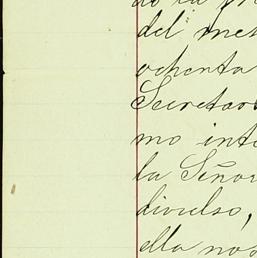 de la pr
del mes
ochenta
Secretar
mo inte
la Señor
divulso,
ella nos